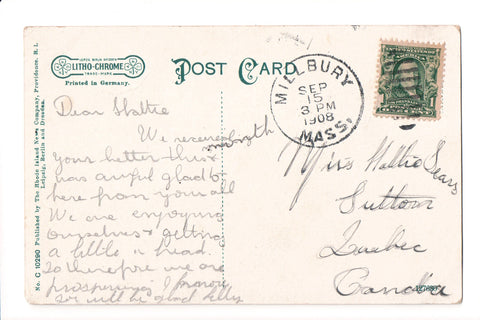 LITHO-CHROME
TRADE-MARK
Printed in Germany.
POST CARD
MILLBURY
SEP
15
3 PM
1908
MASS.
1
No. C 10290 Published by The Rhode Island News Company, Providence, R. I.
Leipzig, Berlin and Dresden.
Dear Hattie
We received
your letter
was awful glad to
hear from you all
We are enjoying
ourselves & getting
a little
So therefore we are
prospering I
will be glad
Miss Hattie Sears
Sutton
Quebec
Canada